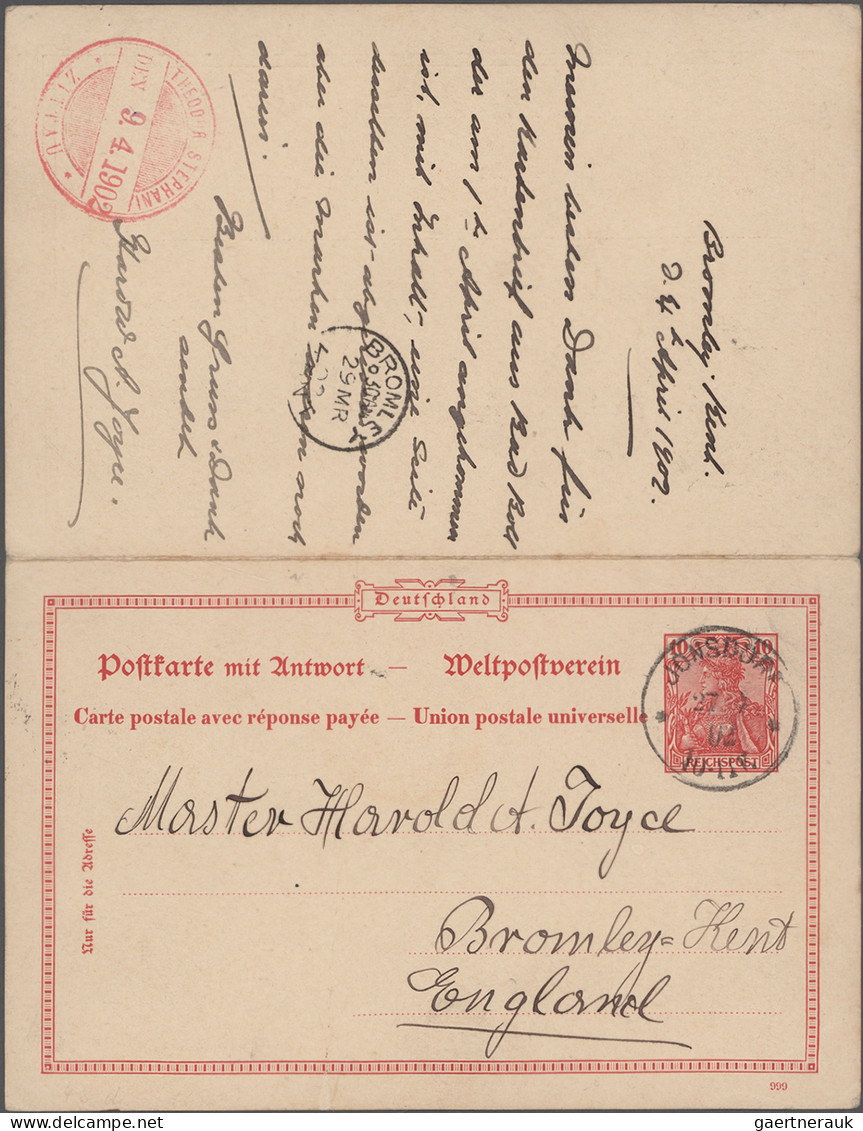 Bromley, Kent.
d. 4th April 1902.
Meinen besten Dank für
den Kartenbrief aus Bad Boll
der am 1ten April angekommen
ist, mit Inhalt, eine Seite
desselben ist abgerissen worden
aber die Marken waren noch
darin.
Besten Gruss & Dank
sendet
Harold A. Joyce.
THEOD. R. STEPHANI
DEN 9.4.1902
* ZITTAU *
BROMLEY
29 MR
Deutschland
Postkarte mit Antwort — Weltpostverein
Carte postale avec réponse payée — Union postale universelle
10 10
REICHSPOST
JONSDORF
27
02
10-11
Nur für die Adresse
Master Harold A. Joyce
Bromley=Kent
England
999
gaertnerauk